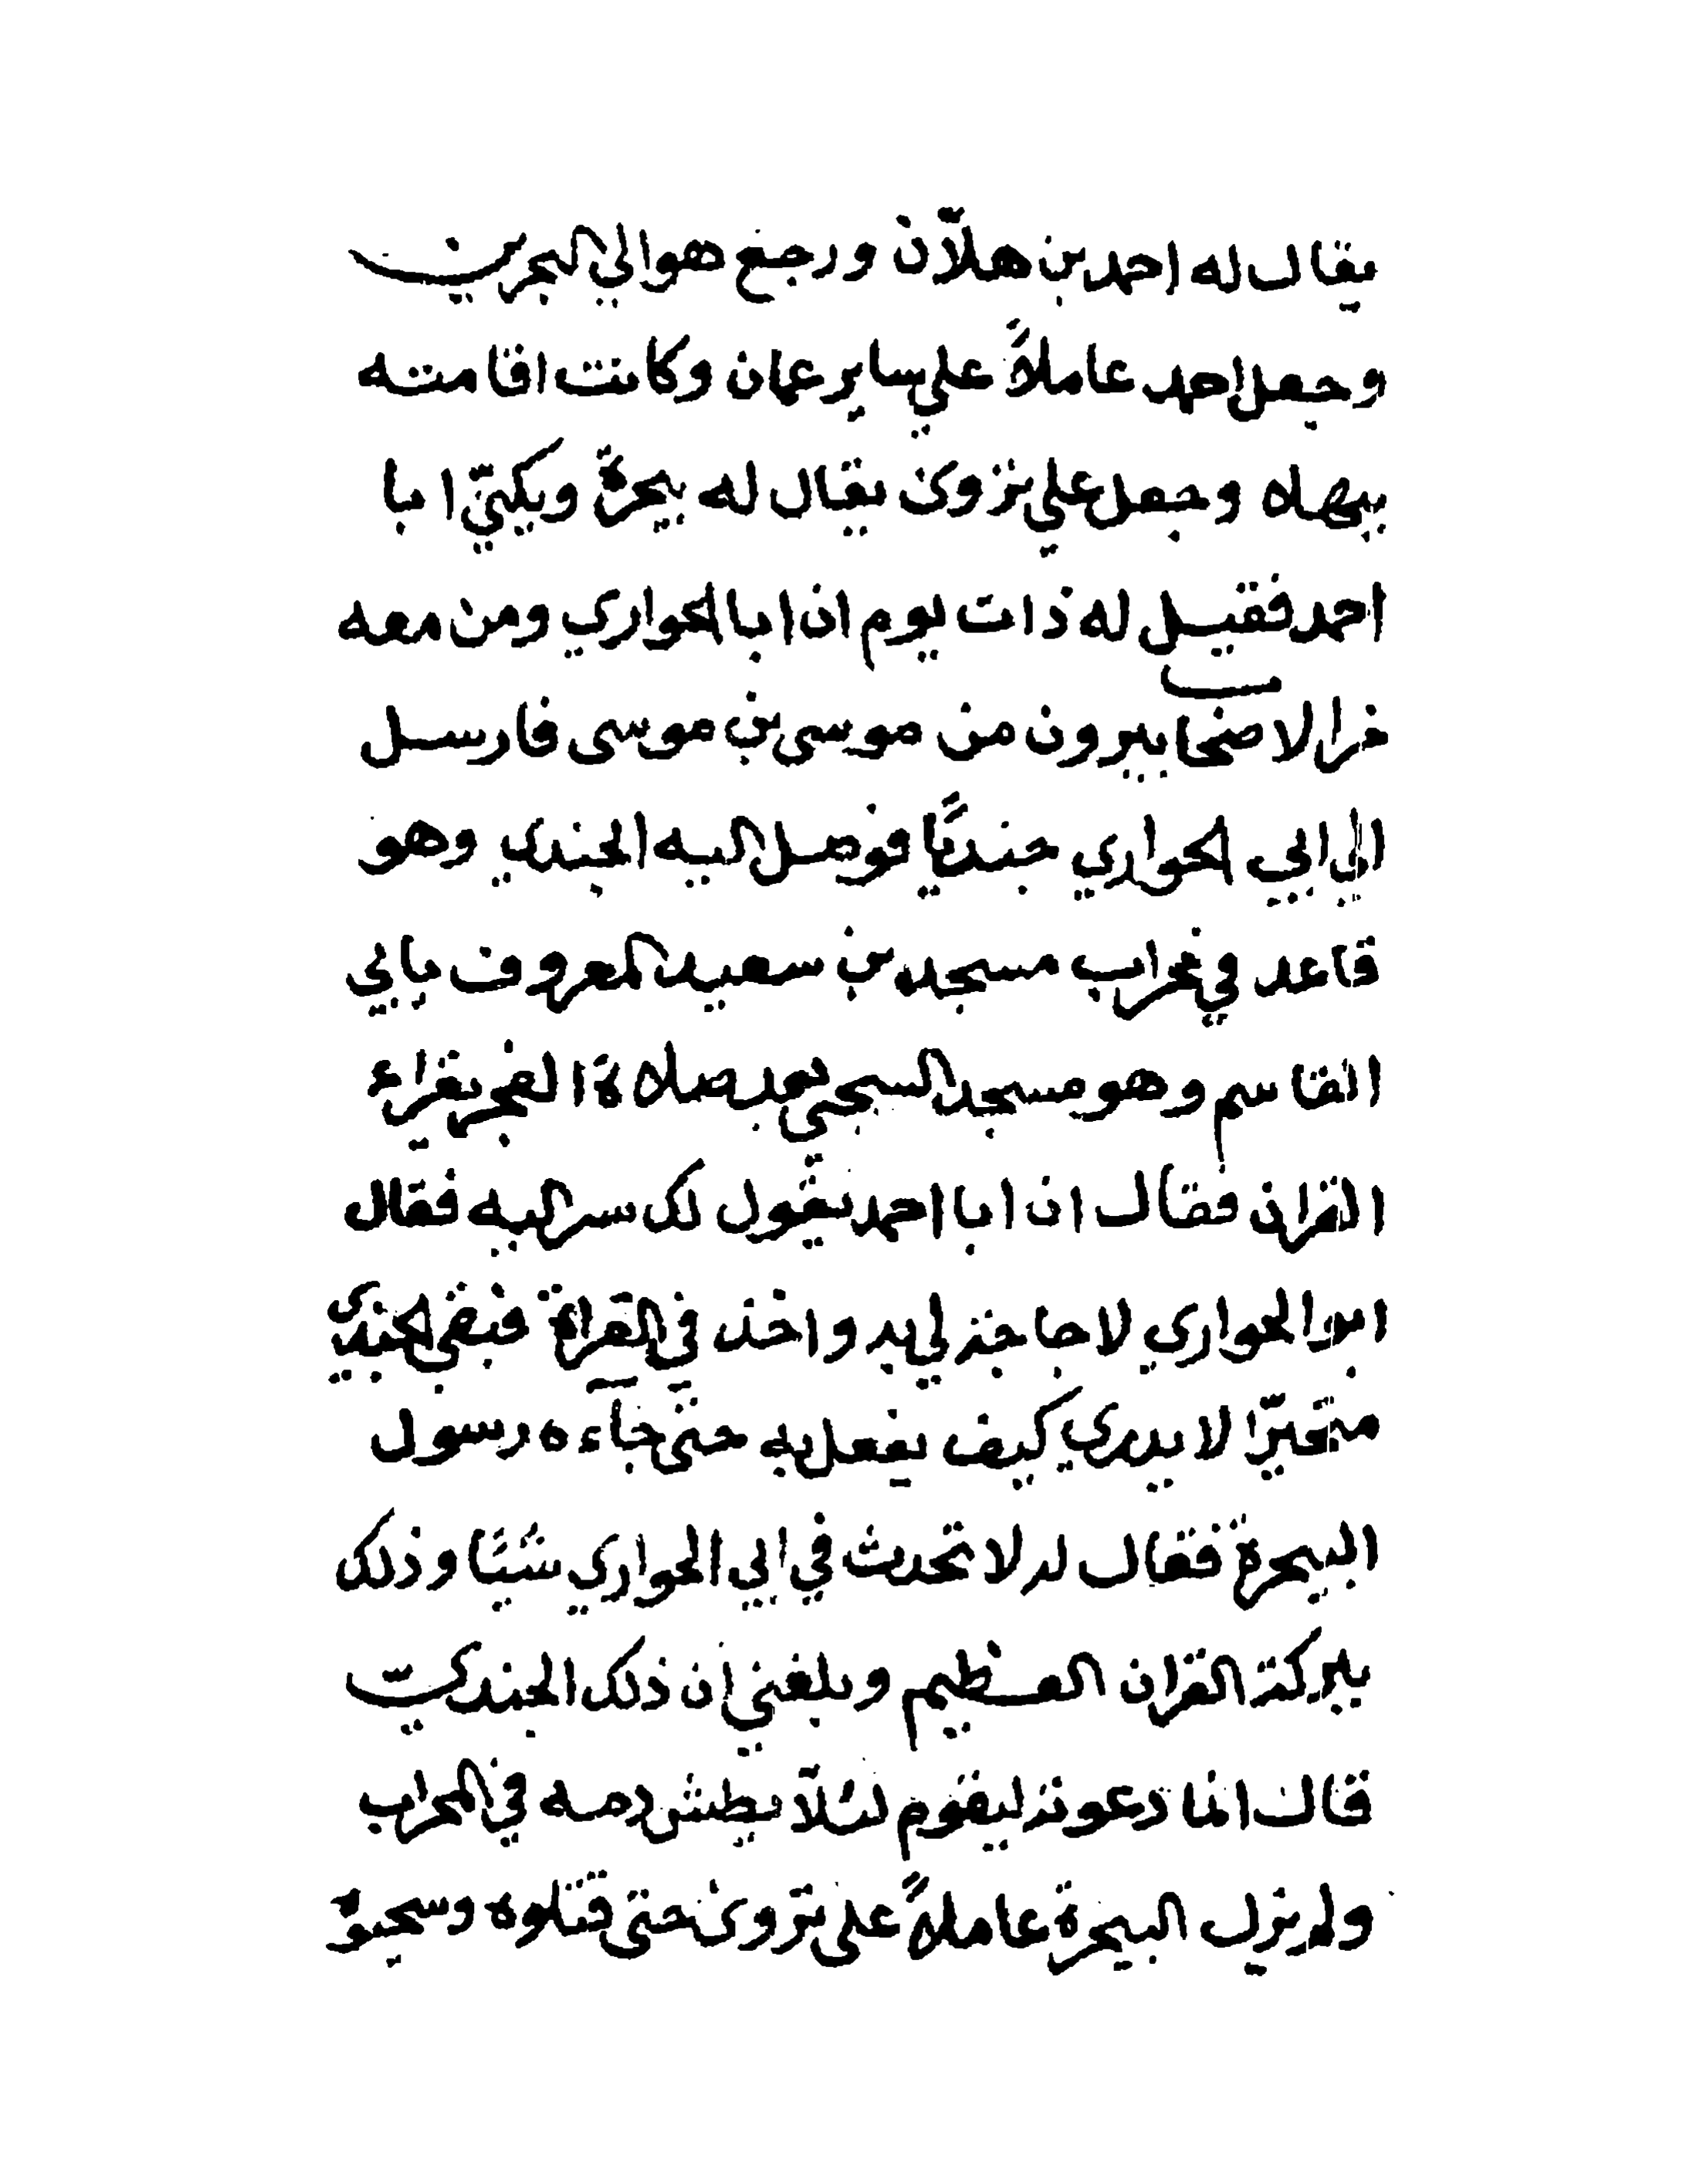 يقال له احمد بن هلاّن ورجع هو الي البحرين
وجعل احمد عاملاً علي ساير عمان وكانت اقامته
ببهلاه وجعل علي نزوى يقال له بيحرة ويكنيّ ابا
احمد فقيل له ذات يوم ان ابا الحواري ومن معه
من الاصحاب يبرون من موسى بن موسى فارسل
الي ابي الحواري جنديًّا فوصل اليه الجندي وهو
قاعد في محراب مسجد بن سعيد المعروف بابي
القاسم وهو مسجد السجبي بعد صلاة الفجر يقراء
القران فقال ان ابا احمد يقول لك سر اليه فقال
ابو الحواري لا حاجة لي به واخذ في القراة فبقي الجندي
متحيرّا لا يدري كيف يفعل به حتى جآءه رسول
البيحرة فقال له لا تحدث في ابي الحواري شيًا وذلك
ببركة القران العظيم وبلغني ان ذلك الجندي
قال انما دعوته ليقوم لئلاّ يطش دمه في المحراب
ولم يزل البيحرة عاملاً على نزوى حتى قتلوه وسحبوه